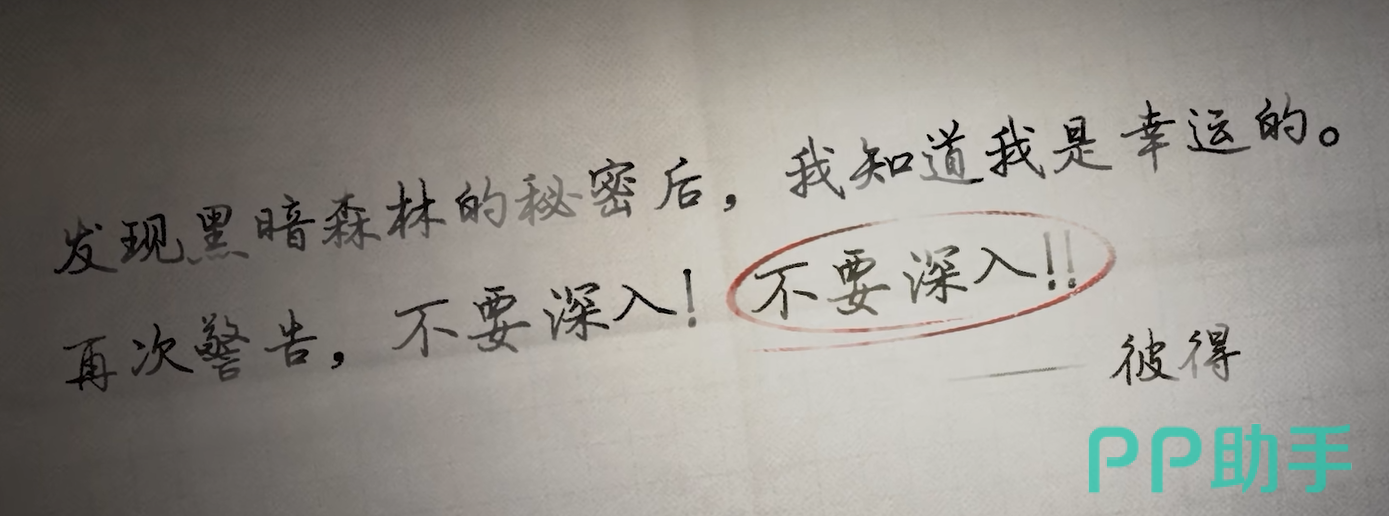 发现黑暗森林的秘密后，我知道我是幸运的。
再次警告，不要深入！不要深入！！
——彼得
PP助手